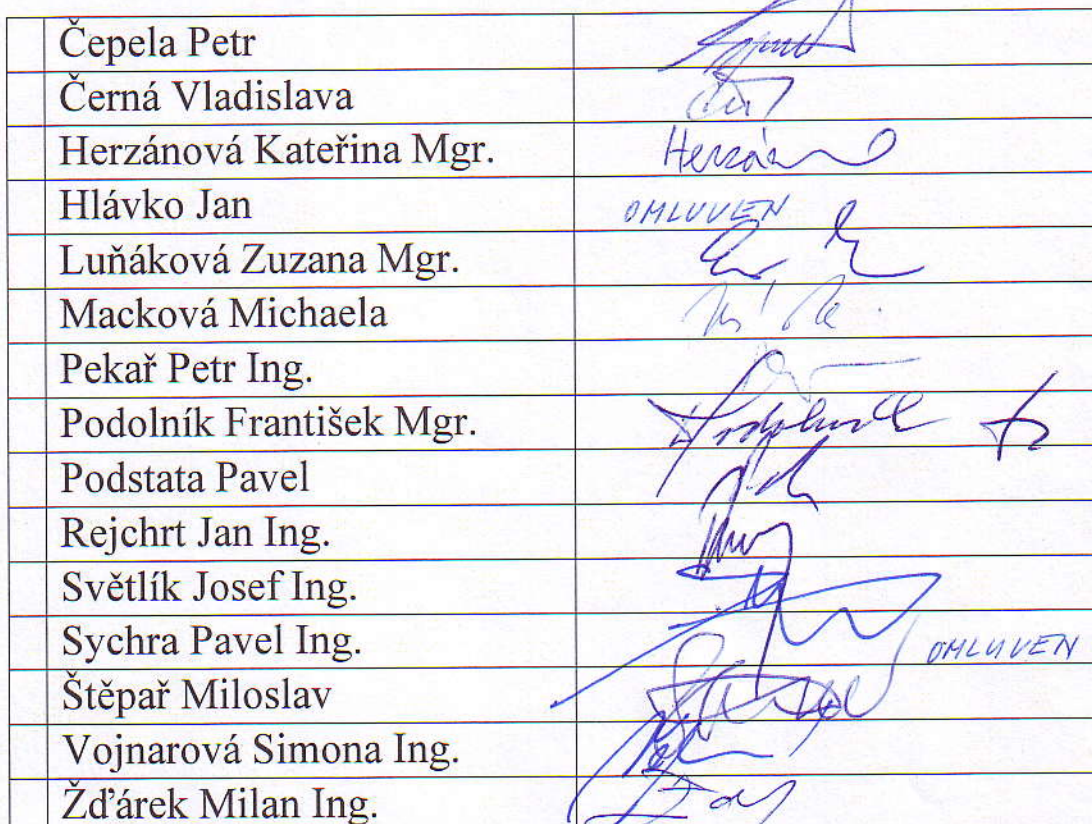 Čepela Petr
Černá Vladislava
Herzánová Kateřina Mgr. Herzán
Hlávko Jan OMLUVEN
Luňáková Zuzana Mgr.
Macková Michaela
Pekař Petr Ing.
Podolník František Mgr.
Podstata Pavel
Rejchrt Jan Ing.
Světlík Josef Ing.
Sychra Pavel Ing. OMLUVEN
Štěpař Miloslav
Vojnarová Simona Ing.
Žďárek Milan Ing.